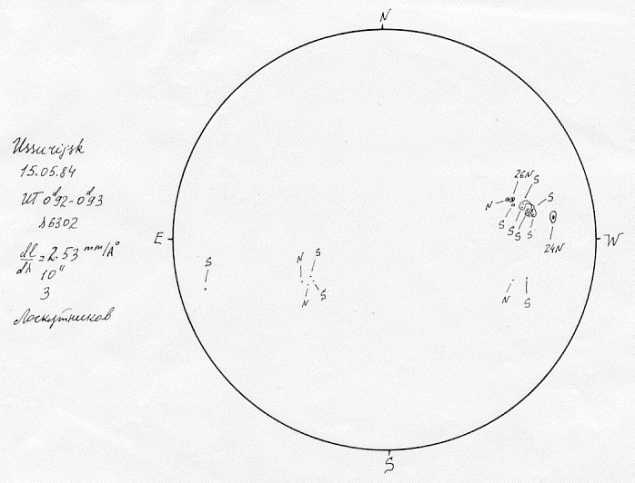 N
Ussurijsk
15.05.84
UT 0ᵈ92-0ᵈ93
λ6302
dl/dλ = 2.53 mm/A°
10"
3
Лоскутников
26N S
N S
S S S S
24N
E W
S N S
N S
N S
S